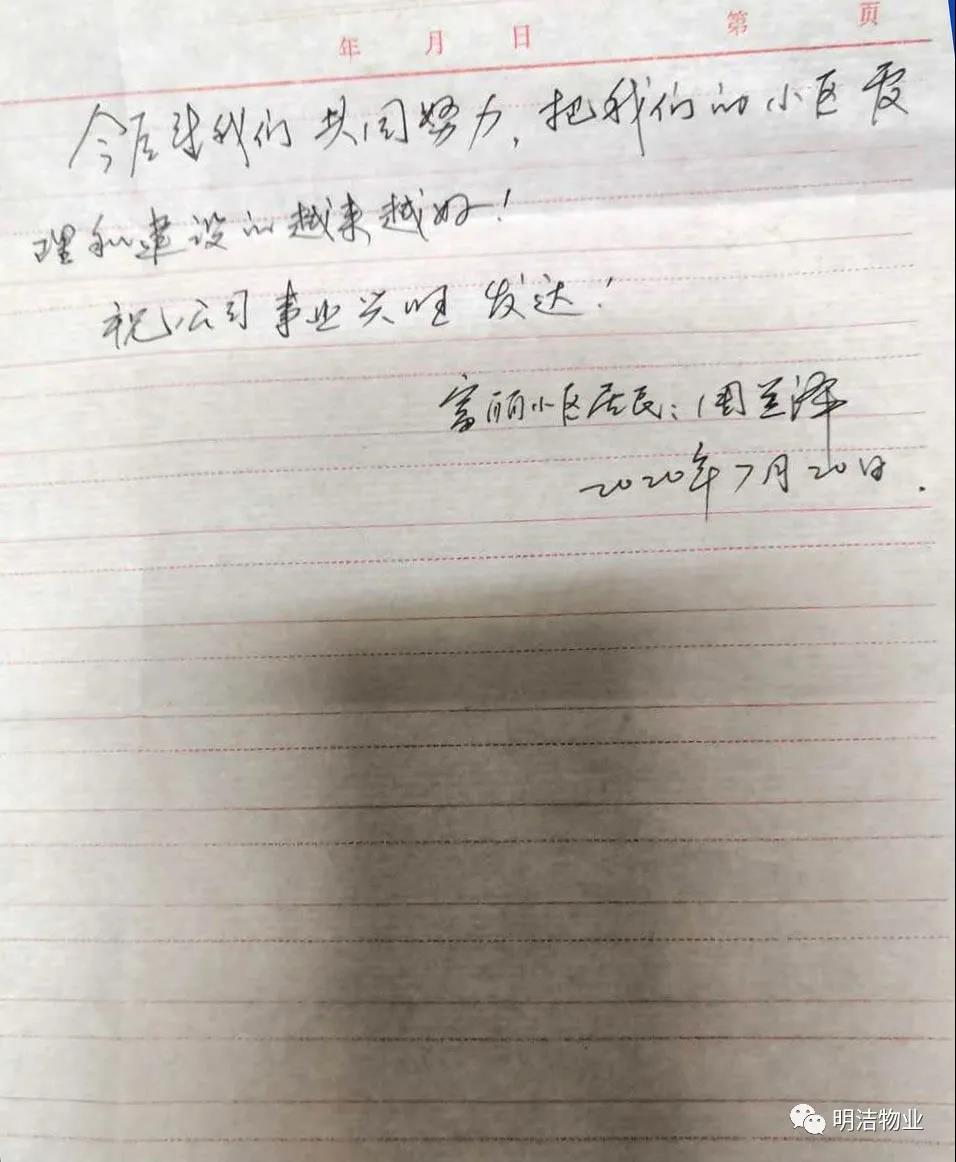 年 月 日 第 页
今后我们共同努力,把我们的小区
理和建设的越来越好!
祝公司事业兴旺发达!
富丽小区居民:周兰泽
2020年7月20日.
明洁物业